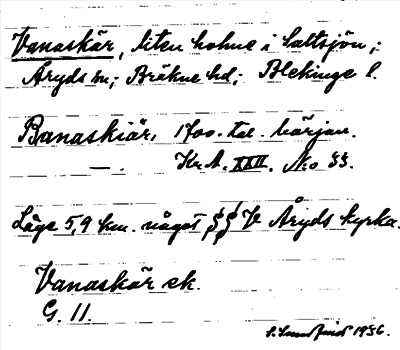 Vanaskär, liten holme i Saltsjön;
Åryds sn; Bräkne hd; Blekinge l.
Banaskiär, 1700-tal. början.
— . Kr.A. XXII. No 33.
Läge 5,9 km. något Åryds kyrka.
Vanaskär ek.
G. 11.
1936.